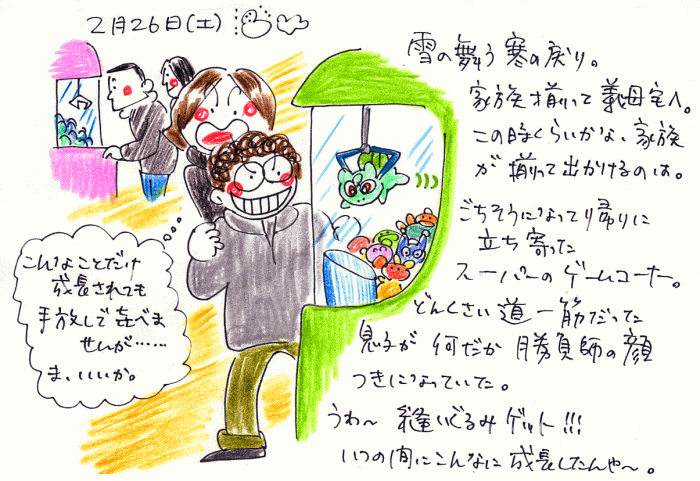 2月26日(土)
雪の舞う寒の戻り。
家族揃って義母宅へ。
この時くらいかな、家族
が揃って出かけるのは。
ごちそうになって帰りに
立ち寄った
スーパーのゲームコーナー。
どんくさい道一筋だった
息子が何だか勝負師の顔
つきになっていた。
うわ〜縫いぐるみゲット!!!
いつの間にこんなに成長したんや〜。
こんなことだけ
成長されても
手放しで喜べま
せんが……
ま、いいか。